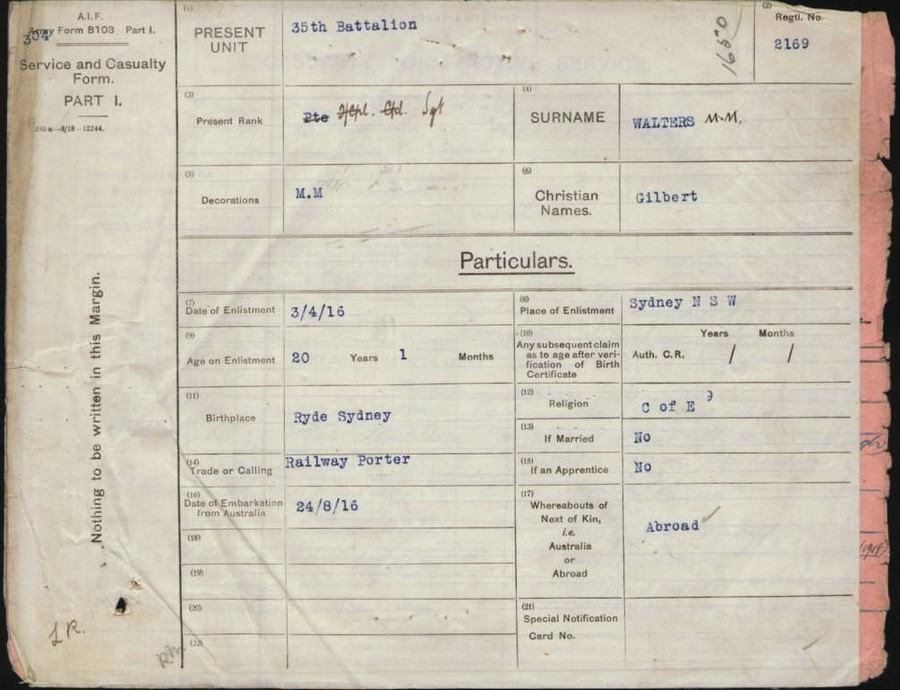 A.I.F.
Army Form B103 Part I.
304
Service and Casualty
Form.
PART I.
(1)
PRESENT
UNIT
35th Battalion
(2)
Regtl. No.
2169
(3)
Present Rank
Pte Sgt
(4)
SURNAME
WALTERS M.M.
(5)
Decorations
M.M
(6)
Christian
Names.
Gilbert
Particulars.
(7)
Date of Enlistment
3/4/16
(8)
Place of Enlistment
Sydney N S W
(9)
Age on Enlistment
20 Years 1 Months
(10)
Any subsequent claim
as to age after veri-
fication of Birth
Certificate
Years Months
Auth. C.R. / /
(11)
Birthplace
Ryde Sydney
(12)
Religion
C of E
(13)
If Married
No
(14)
Trade or Calling
Railway Porter
(15)
If an Apprentice
No
(16)
Date of Embarkation
from Australia
24/8/16
(17)
Whereabouts of
Next of Kin,
i.e.
Australia
or
Abroad
Abroad
(18)
(19)
(20)
(21)
Special Notification
Card No.
(22)
Nothing to be written in this Margin.